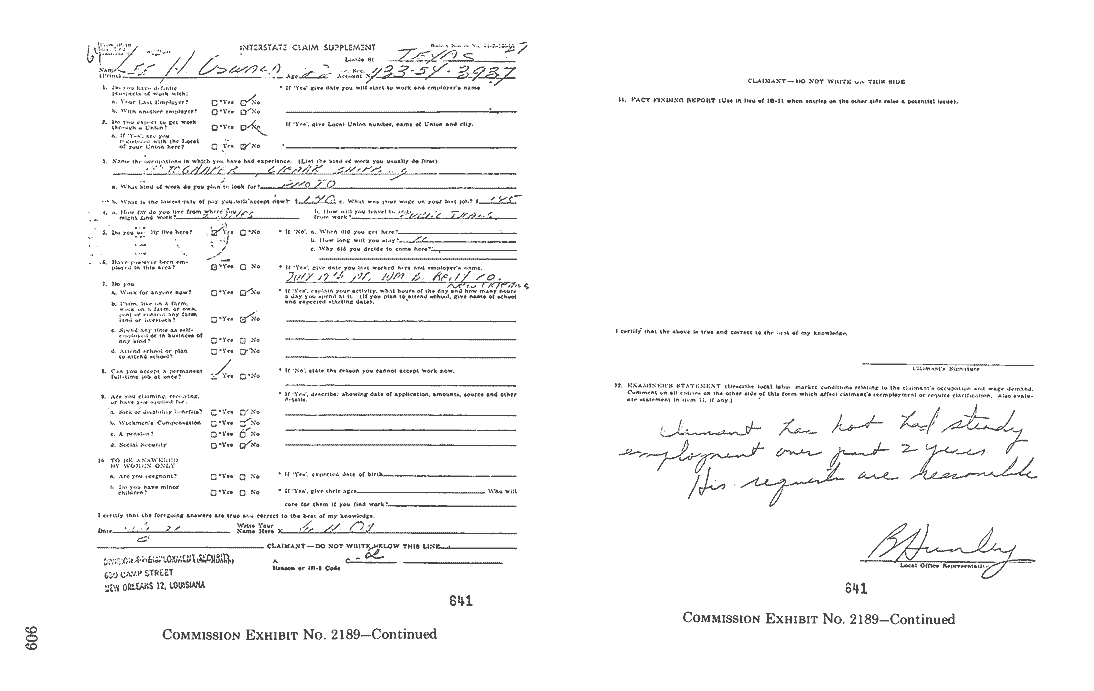 INTERSTATE CLAIM SUPPLEMENT
Liable St TEXAS
Name LEE H OSWALD Age Account No. 433-54-3937
(Print)
1. Do you have definite
prospects of work with:
* If 'Yes' give date you will start to work and employer's name
a. Your Last Employer? *Yes No
b. With another employer? *Yes No
2. Do you expect to get work
through a Union? *Yes No
If 'Yes', give Local Union number, name of Union and city.
a. If 'Yes', are you
registered with the Local
of your Union here? Yes No
3. Name the occupations in which you have had experience. (List the kind of work you usually do first)
CLERK SHIPPING
a. What kind of work do you plan to look for? PHOTO
b. What is the lowest rate of pay you will accept now? $ c. What was your wage on your last job? $
4. a. How far do you live from where you
might find work?
b. How will you travel to and
from work? PUBLIC TRANS.
5. Do you live here? Yes *No
* If 'No', a. When did you get here?
b. How long will you stay?
c. Why did you decide to come here?
6. Have you ever been em-
ployed in this area? *Yes No
* If 'Yes', give date you last worked here and employer's name.
JULY 19th WM B. REILY CO.
NEW ORLEANS
7. Do you
a. Work for anyone now? *Yes No
* If 'Yes', explain your activity, what hours of the day and how many hours
a day you spend at it. (If you plan to attend school, give name of school
and expected starting date).
b. Farm, live on a farm,
work on a farm, or own,
rent or control any farm
land or livestock? *Yes No
c. Spend any time as self-
employed or in business of
any kind? *Yes No
d. Attend school or plan
to attend school? *Yes No
8. Can you accept a permanent
full-time job at once? Yes *No
* If 'No', state the reason you cannot accept work now.
9. Are you claiming, receiving,
or have you applied for:
* If 'Yes', describe: showing date of application, amounts, source and other
details.
a. Sick or disability benefits? *Yes No
b. Workmen's Compensation *Yes No
c. A pension? *Yes No
d. Social Security *Yes No
10. TO BE ANSWERED
BY WOMEN ONLY
a. Are you pregnant? *Yes No
* If 'Yes', expected date of birth
b. Do you have minor
children? *Yes No
* If 'Yes', give their ages Who will
care for them if you find work?
I certify that the foregoing answers are true and correct to the best of my knowledge.
Date Write Your
Name Here X
CLAIMANT—DO NOT WRITE BELOW THIS LINE
DIVISION OF EMPLOYMENT SECURITY
630 CAMP STREET
NEW ORLEANS 12, LOUISIANA
A
Reason or IB-1 Code
641
COMMISSION EXHIBIT No. 2189—Continued
606
CLAIMANT—DO NOT WRITE ON THIS SIDE
11. FACT FINDING REPORT (Use in lieu of IB-11 when entries on the other side raise a potential issue).
I certify that the above is true and correct to the best of my knowledge.
Claimant's Signature
12. EXAMINER'S STATEMENT (Describe local labor market conditions relating to the claimant's occupation and wage demand.
Comment on all entries on the other side of this form which affect claimant's reemployment or require clarification. Also evalu-
ate statement in item 11, if any.)
Claimant has not had steady
employment over past 2 years.
His requests are reasonable
B Hunley
Local Office Representative
641
COMMISSION EXHIBIT No. 2189—Continued